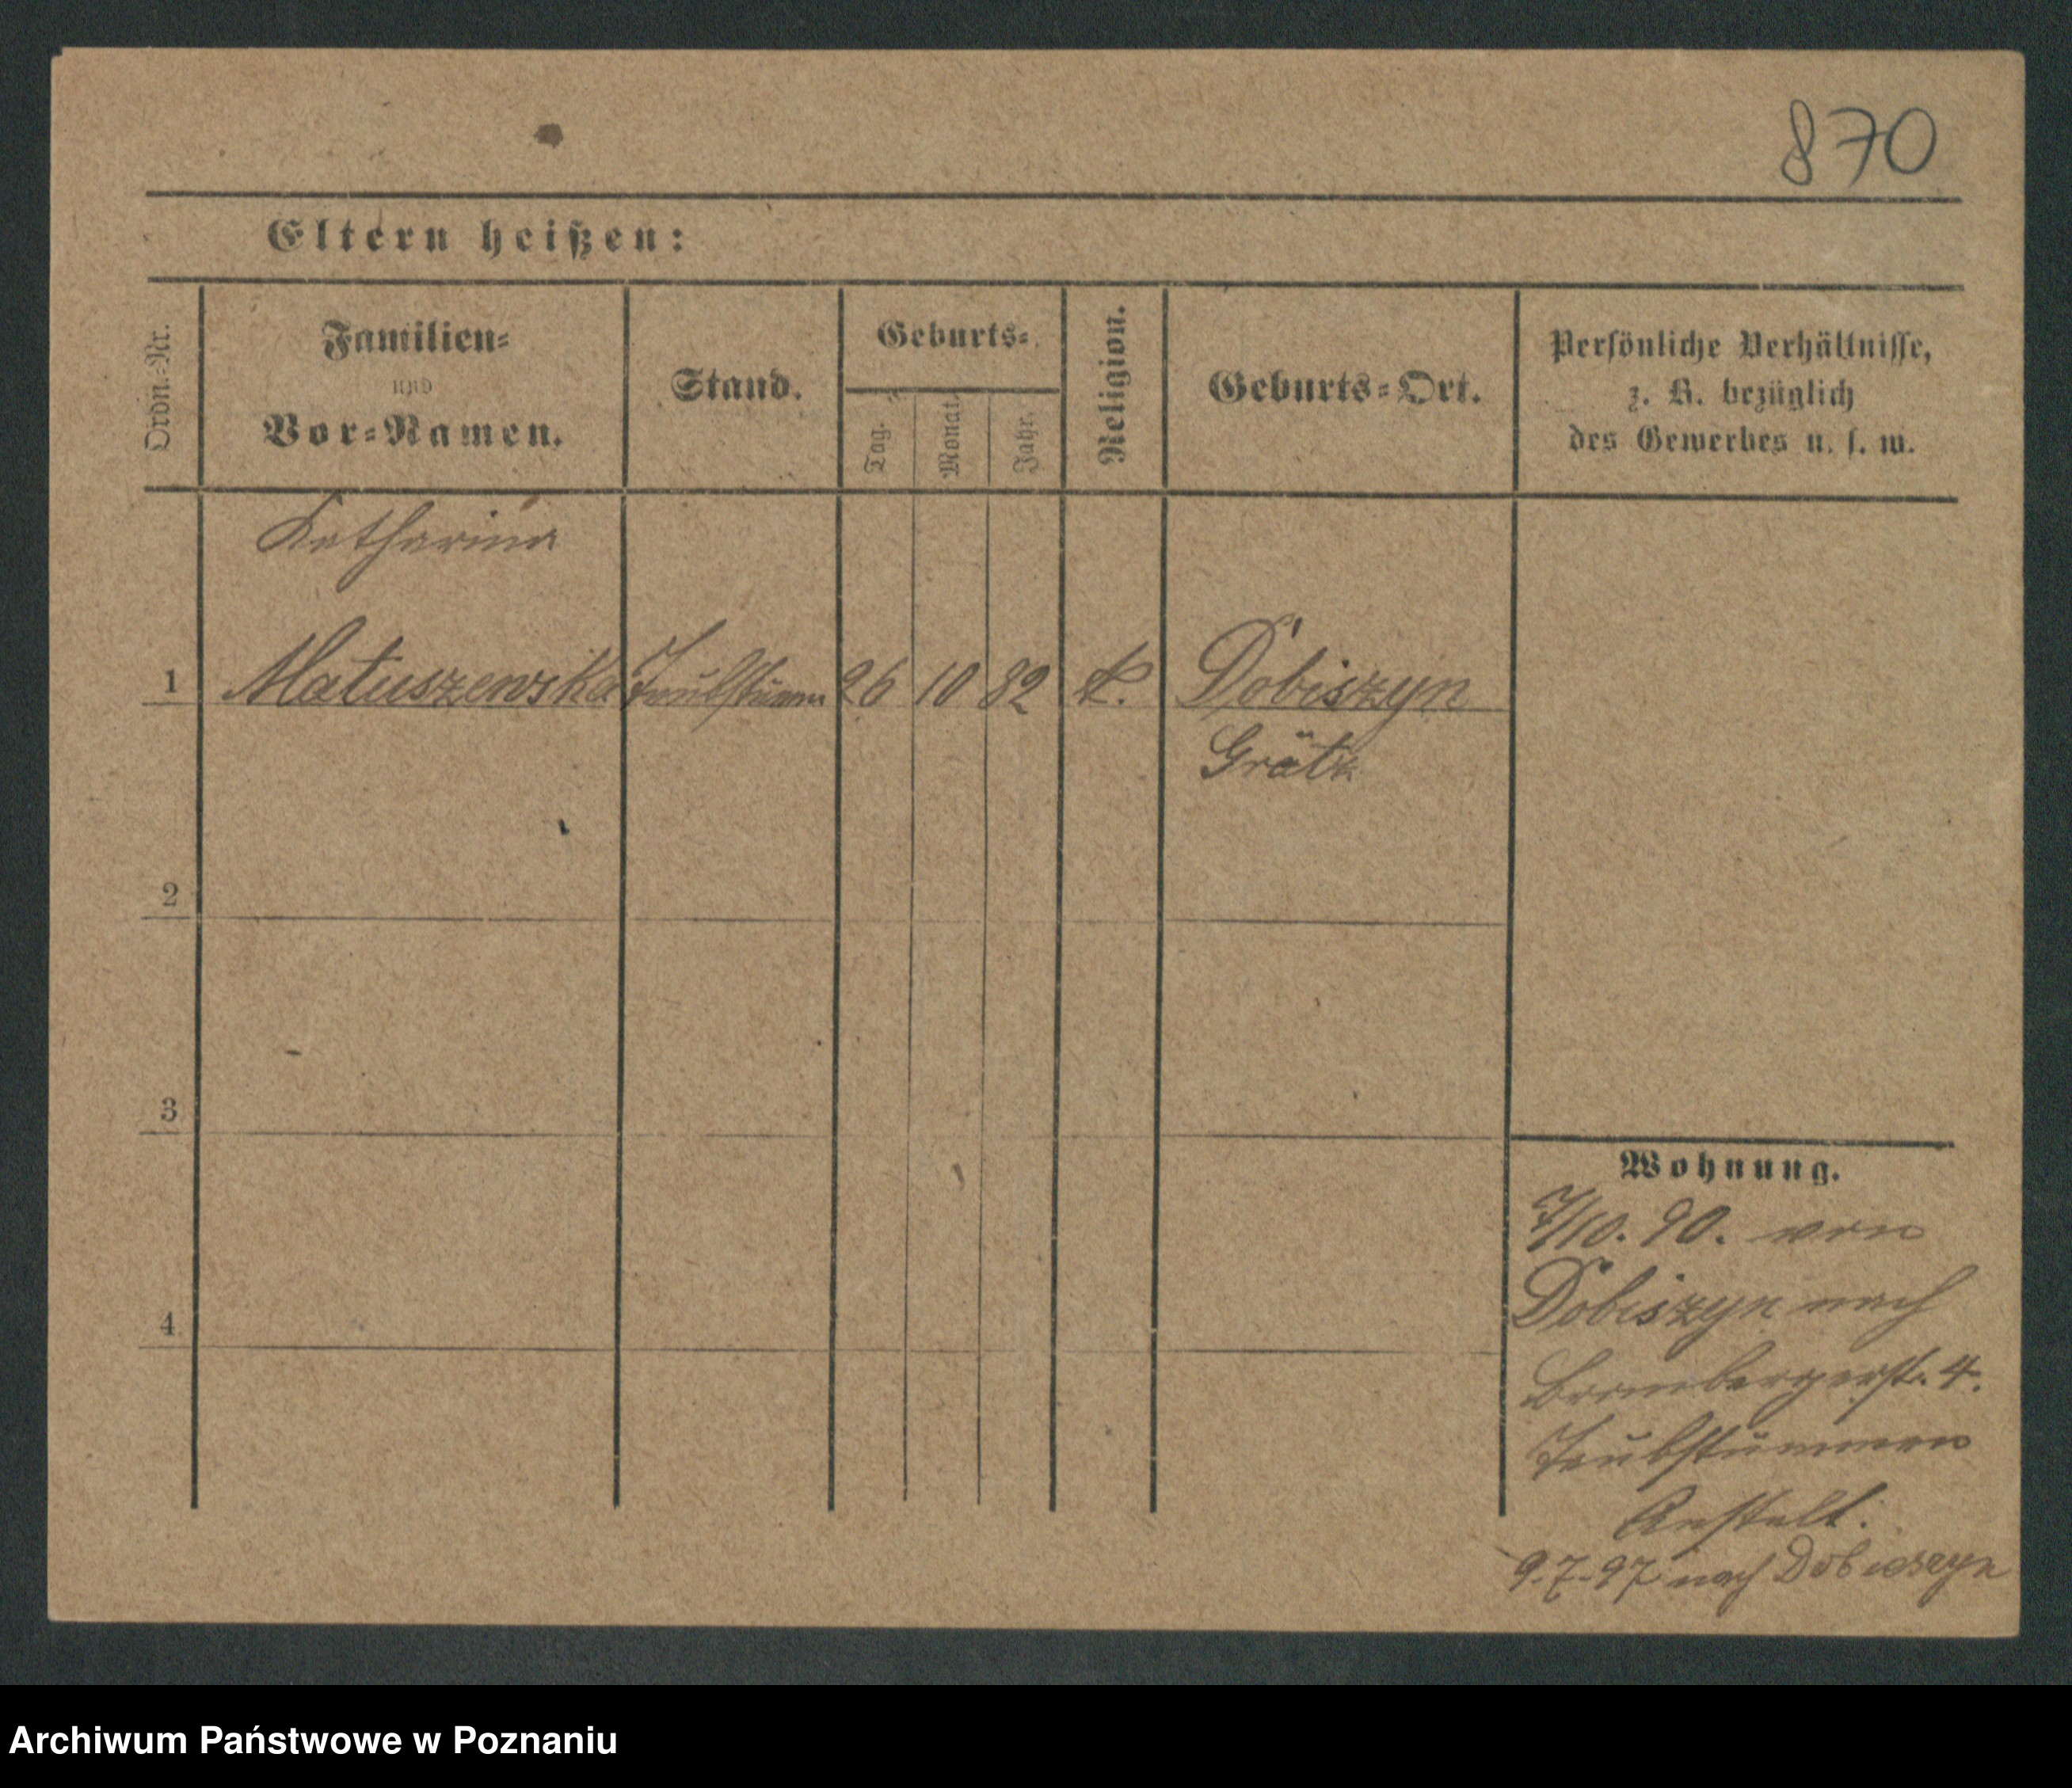 870
Eltern heißen:
Ordn.-Nr.
Familien-
und
Vor-Namen.
Stand.
Geburts-
Tag.
Monat.
Jahr.
Religion.
Geburts-Ort.
Persönliche Verhältnisse,
z. B. bezüglich
des Gewerbes u. s. w.
Katharina
1 Matuszewska Taubstumm 26 10 82 k. Dobiszyn
Grätz
2
3
4
Wohnung.
7/10. 90. von
Dobiszyn nach
Brombergerst. 4.
Taubstummen
Anstalt.
9.7.97 nach Dobieszyn
Archiwum Państwowe w Poznaniu